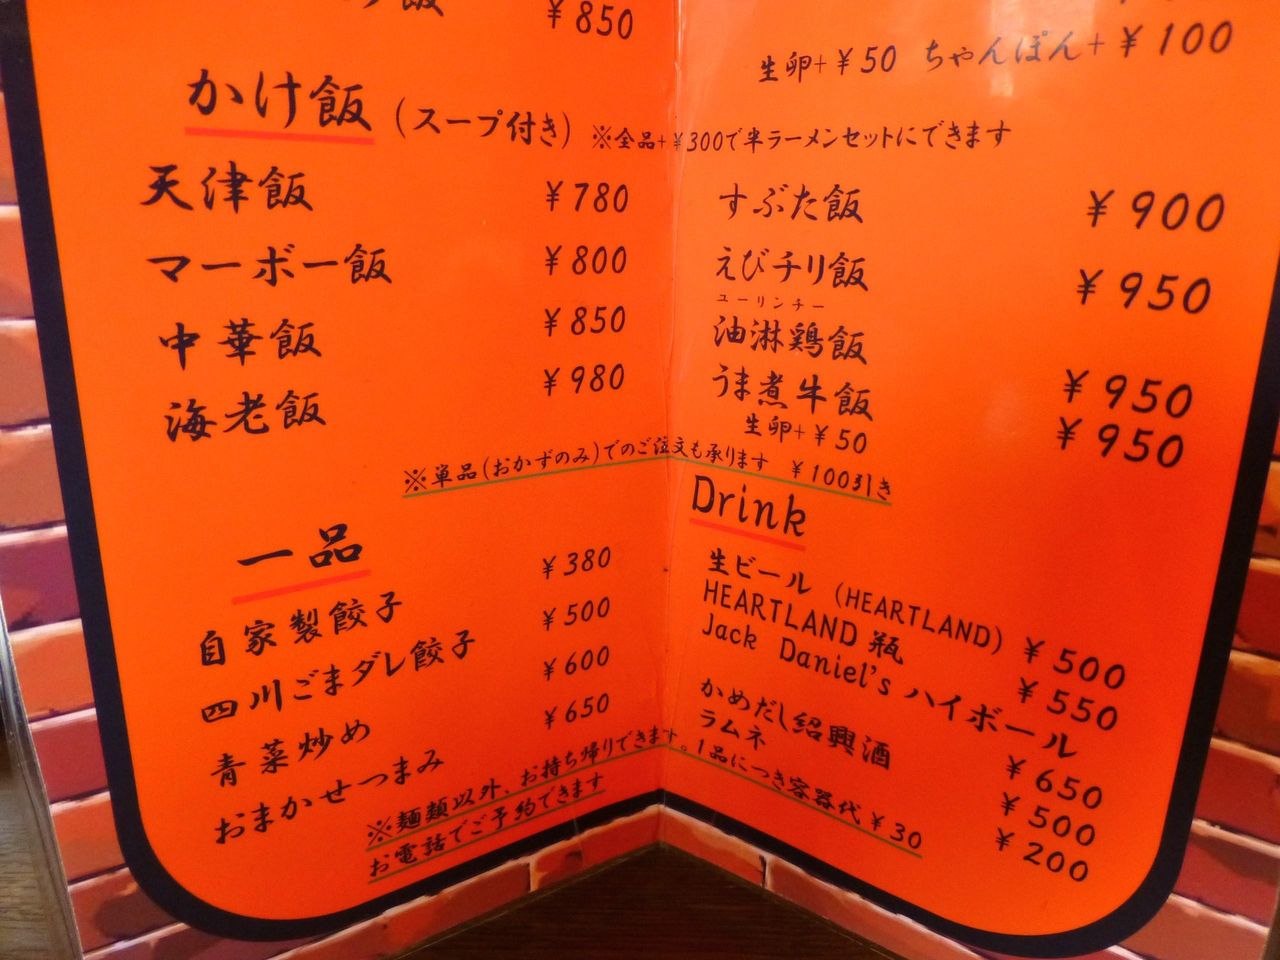 飯 ￥850
生卵+￥50 ちゃんぽん+￥100
かけ飯(スープ付き) ※全品+￥300で半ラーメンセットにできます
天津飯 ￥780
マーボー飯 ￥800
中華飯 ￥850
海老飯 ￥980
すぶた飯 ￥900
えびチリ飯 ￥950
ユーリンチー
油淋鶏飯 ￥950
うま煮牛飯 ￥950
生卵+￥50
※単品(おかずのみ)でのご注文も承ります ￥100引き
一品
自家製餃子 ￥380
四川ごまダレ餃子 ￥500
青菜炒め ￥600
おまかせつまみ ￥650
Drink
生ビール (HEARTLAND) ￥500
HEARTLAND 瓶 ￥550
Jack Daniel's ハイボール ￥650
かめだし紹興酒 ￥500
ラムネ ￥200
※麺類以外、お持ち帰りできます。1品につき容器代￥30
お電話でご予約できます